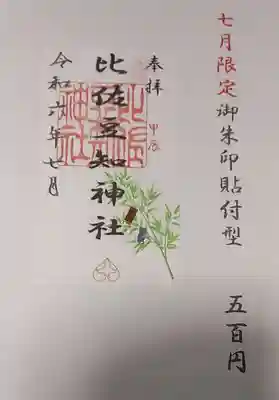 七月限定御朱印貼付型
五百円
奉拝
甲辰
比佐豆知神社
令和六年七月